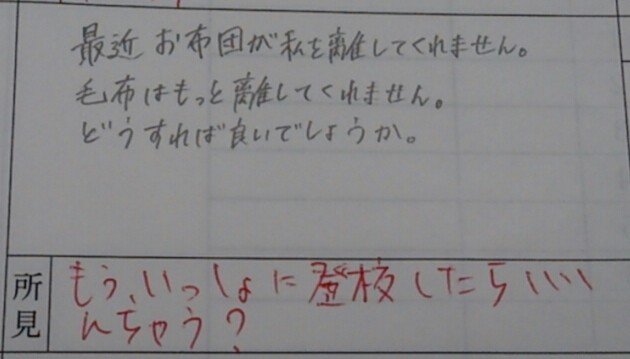 最近お布団が私を離してくれません。
毛布はもっと離してくれません。
どうすれば良いでしょうか。
所見
もう、いっしょに登校したらいい
んちゃう?